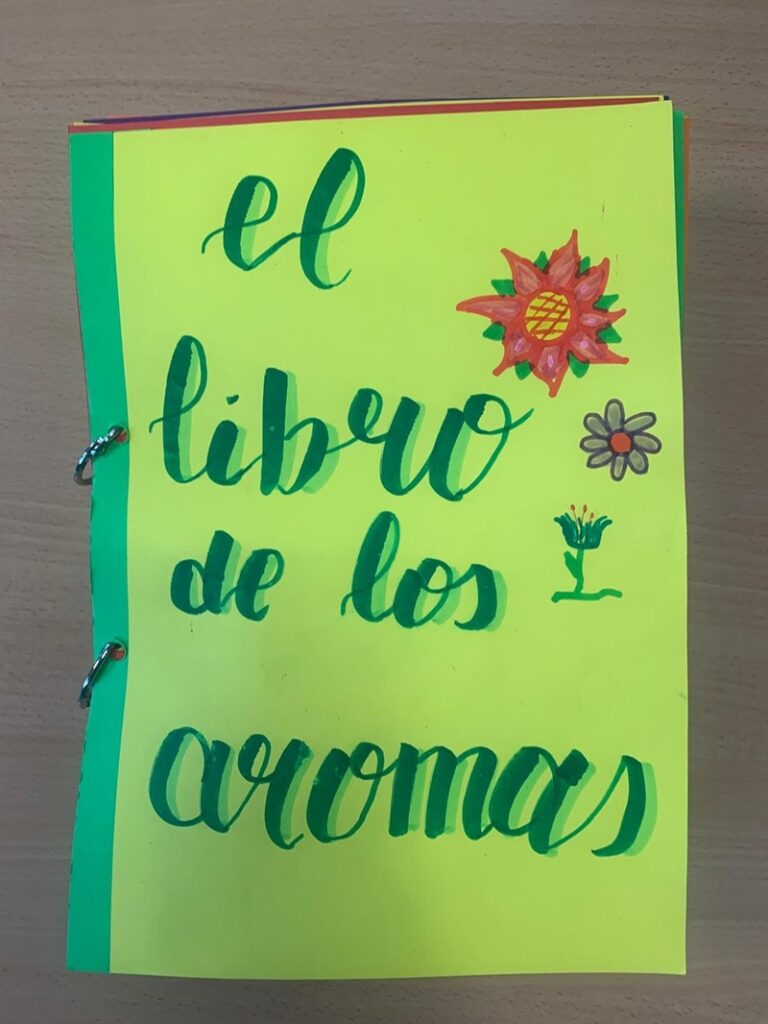 el
libro
de los
aromas